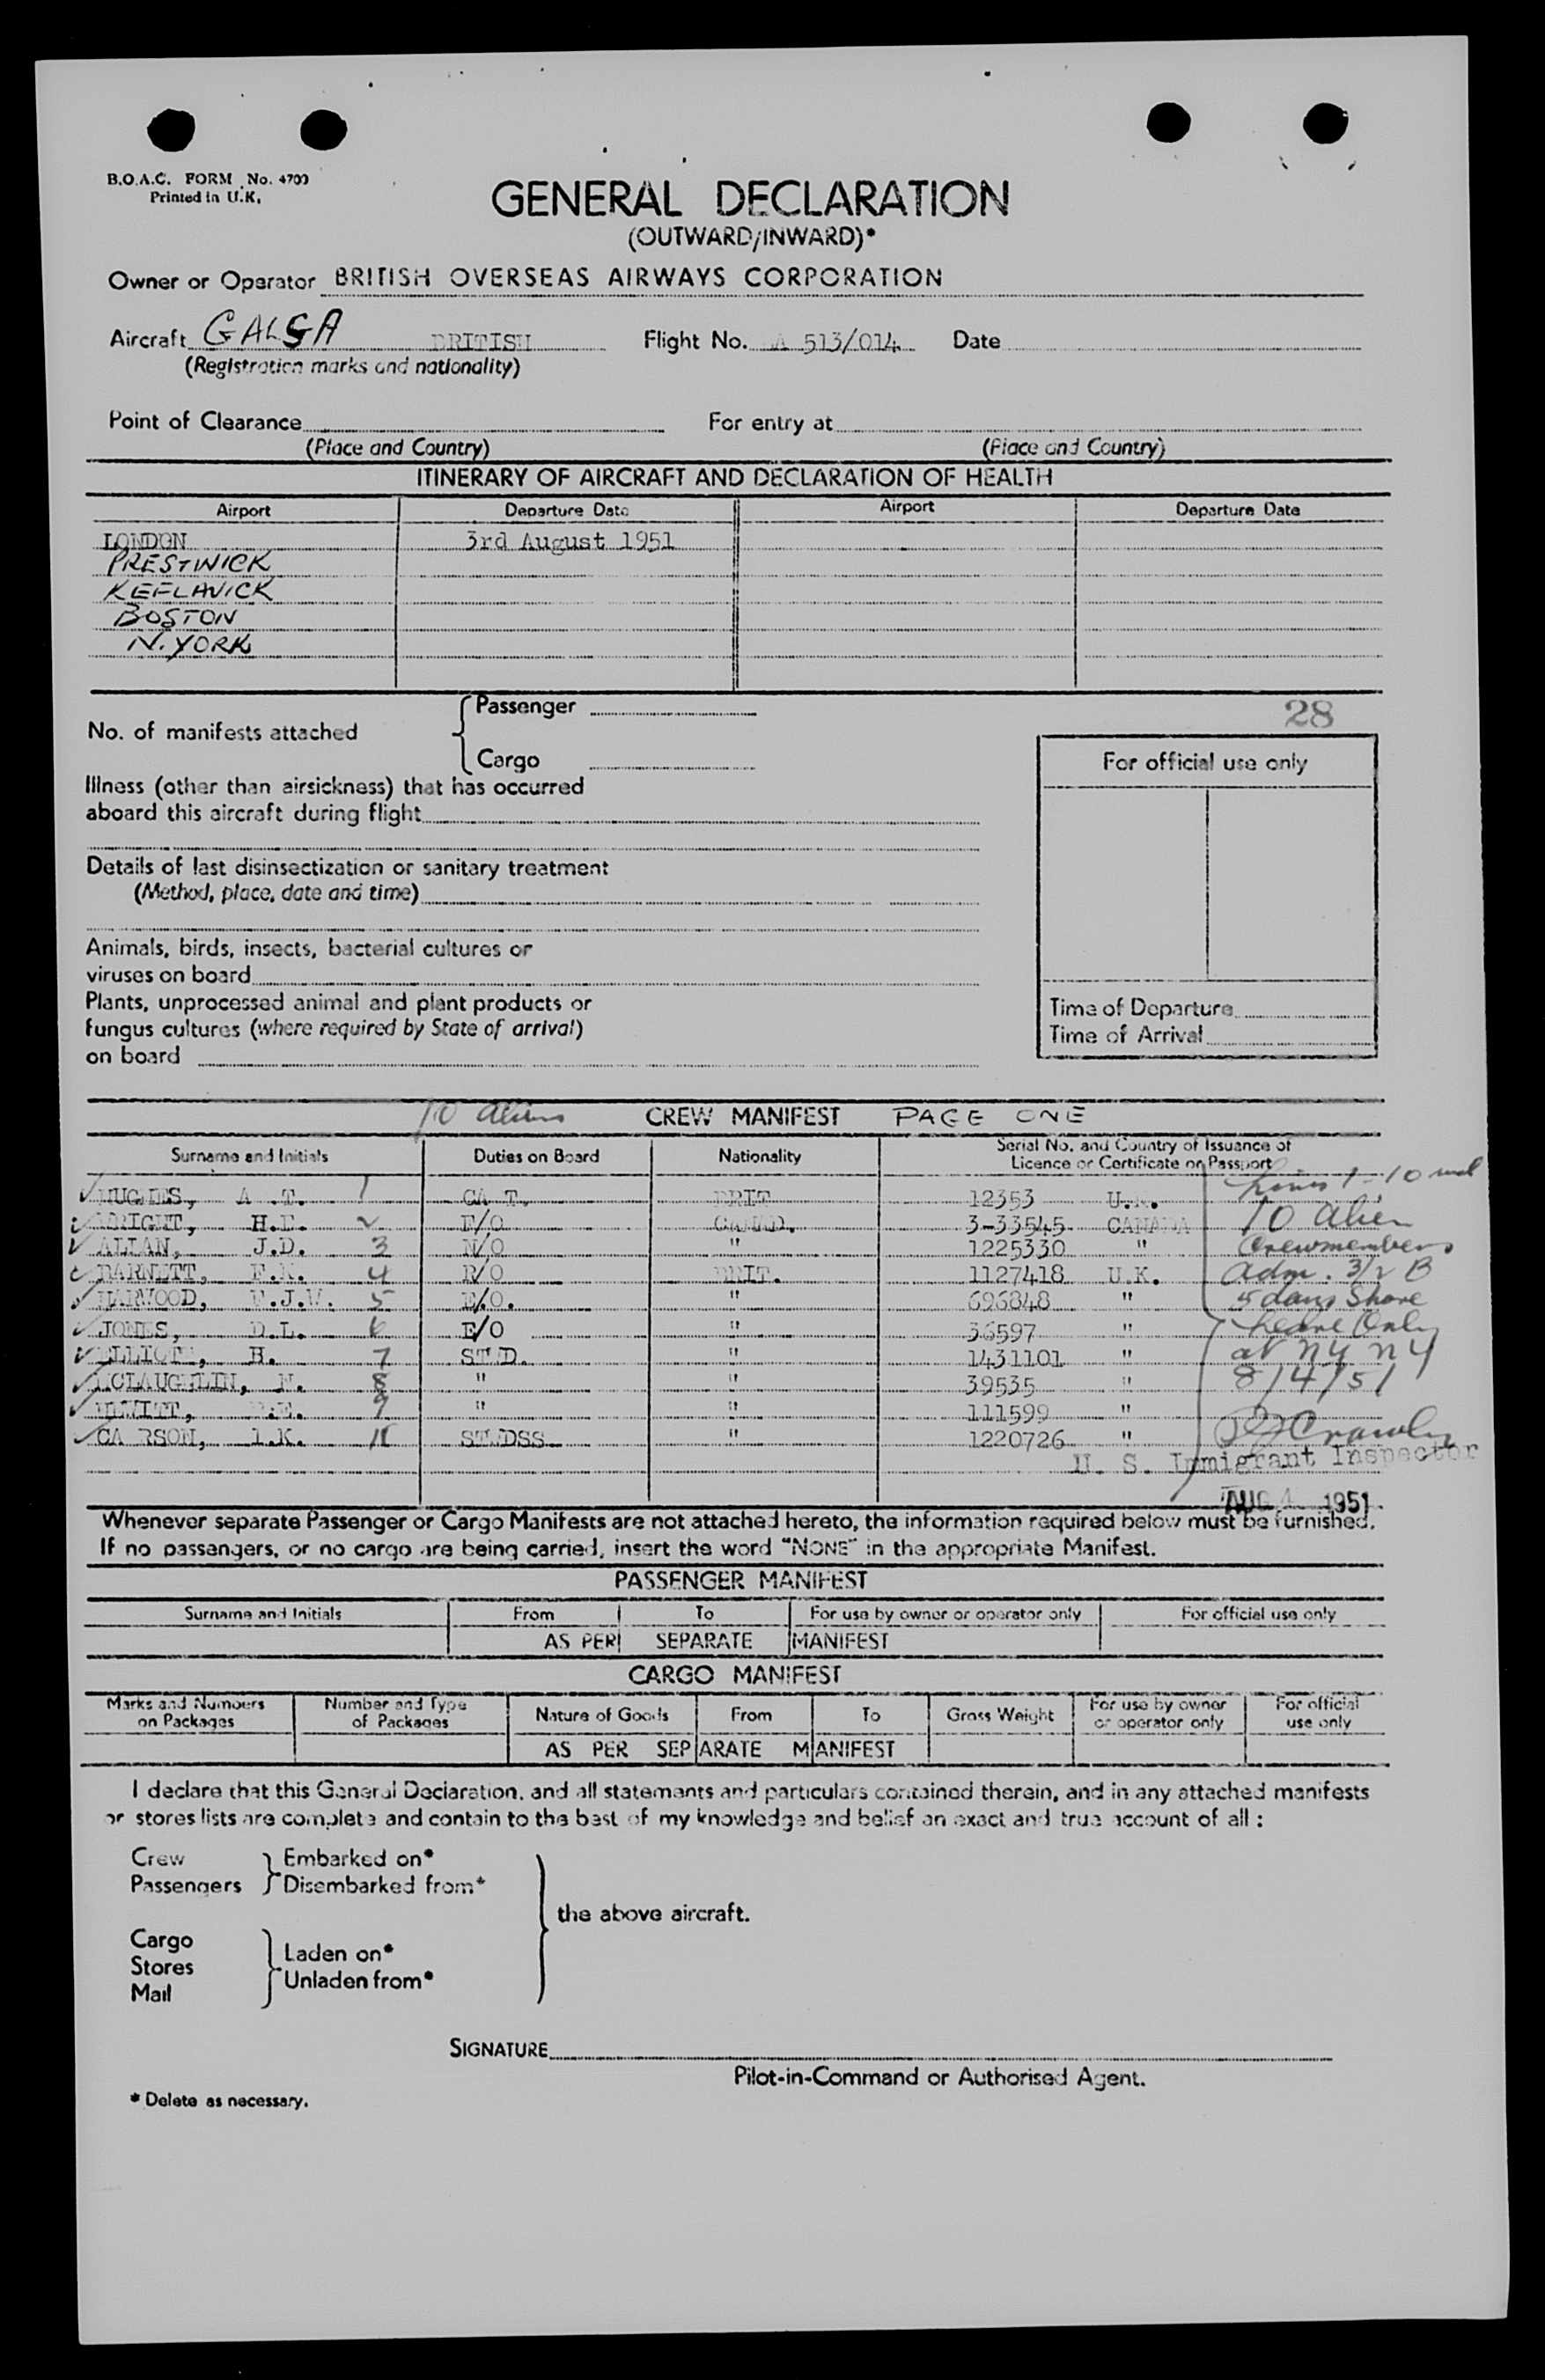 B.O.A.C. FORM No. 4700
Printed in U.K.
GENERAL DECLARATION
(OUTWARD/INWARD)*
Owner or Operator BRITISH OVERSEAS AIRWAYS CORPORATION
Aircraft GALSA BRITISH Flight No. A 513/014 Date
(Registration marks and nationality)
Point of Clearance For entry at
(Place and Country) (Place and Country)
ITINERARY OF AIRCRAFT AND DECLARATION OF HEALTH
Airport Departure Date Airport Departure Date
LONDON 3rd August 1951
PRESTWICK
KEFLAVICK
BOSTON
N. YORK
No. of manifests attached { Passenger
Cargo
28
For official use only
Illness (other than airsickness) that has occurred
aboard this aircraft during flight
Details of last disinsectization or sanitary treatment
(Method, place, date and time)
Animals, birds, insects, bacterial cultures or
viruses on board
Plants, unprocessed animal and plant products or
fungus cultures (where required by State of arrival)
on board
Time of Departure
Time of Arrival
10 aliens CREW MANIFEST PAGE ONE
Surname and Initials Duties on Board Nationality Serial No. and Country of Issuance of
Licence or Certificate or Passport
HUGHES, A .T. 1 CA T. BRIT 12353 U.K.
WRIGHT, H.E. 2 F/O CANAD. 3-33545 CANADA
ALLAN, J.D. 3 N/O " 1225330 "
BARNETT, 4 R/O BRIT. 1127418 U.K.
HARWOOD, 5 E/O. " 696848 "
JONES, D.L. 6 E/O " 36597 "
ELLIOTT, H. 7 STWD. " 1431101 "
MCLAUGHLIN, 8 " " 39535 "
9 " " 111599 "
CA RSON, I.K. 10 STWDSS " 1220726 "
Lines 1-10 incl
10 alien
Crewmembers
adm. 3/2 B
5 days Shore
Leave Only
at NY NY
8/4/51
U. S. Immigrant Inspector
AUG 4 1951
Whenever separate Passenger or Cargo Manifests are not attached hereto, the information required below must be furnished.
If no passengers, or no cargo are being carried, insert the word "NONE" in the appropriate Manifest.
PASSENGER MANIFEST
Surname and Initials From To For use by owner or operator only For official use only
AS PER SEPARATE MANIFEST
CARGO MANIFEST
Marks and Numbers on Packages Number and Type of Packages Nature of Goods From To Gross Weight For use by owner or operator only For official use only
AS PER SEPARATE MANIFEST
I declare that this General Declaration, and all statements and particulars contained therein, and in any attached manifests
or stores lists are complete and contain to the best of my knowledge and belief an exact and true account of all :
Crew } Embarked on*
Passengers } Disembarked from*
the above aircraft.
Cargo
Stores } Laden on*
Mail } Unladen from*
SIGNATURE
Pilot-in-Command or Authorised Agent.
* Delete as necessary.